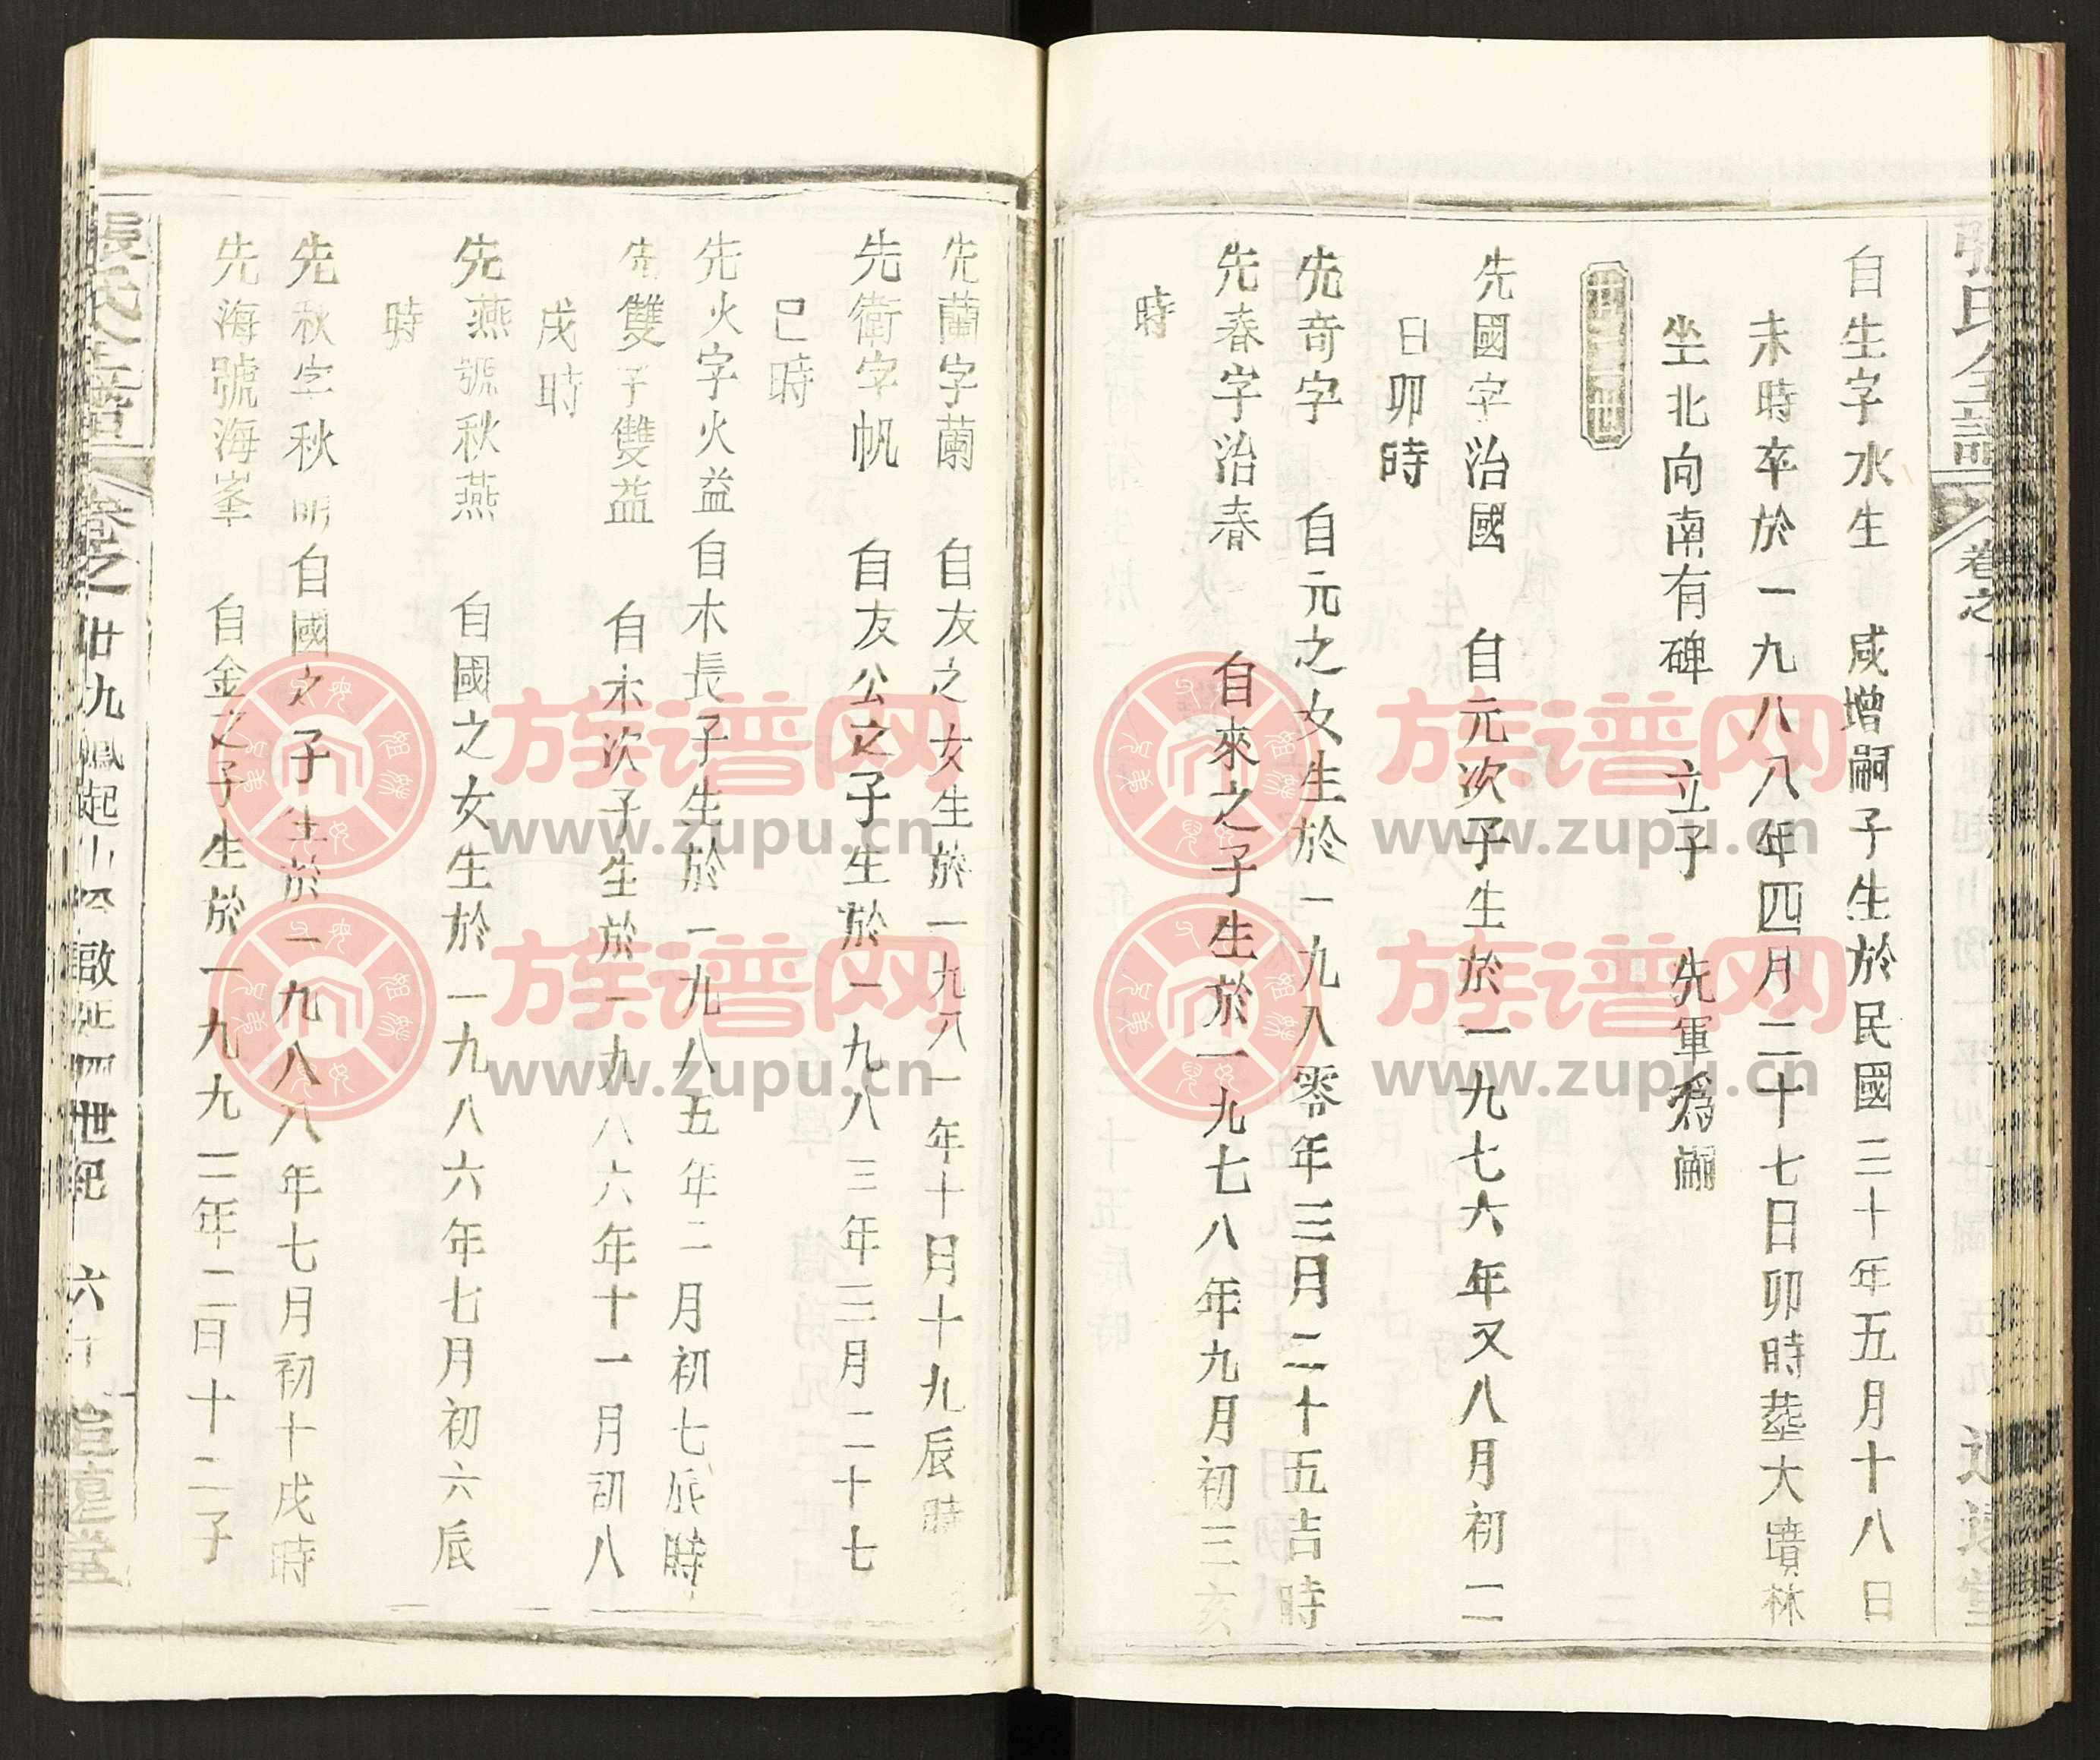 自生字水生 咸增嗣子生於民國三十年五月十八日
未時卒於一九八八年四月二十七日卯時塟大墳林
坐北向南有碑 立子 先軍爲嗣
先國字治國 自元次子生於一九七六年又八月初二
日卯時
先奇字 自元之女生於一九八零年三月二十五吉時
先春字治春 自來之子生於一九七八年九月初三亥
時
先蘭字蘭 自友之女生於一九八一年十月十九辰時
先衛字帆 自友公之子生於一九八三年三月二十七
巳時
先火字火益 自木長子生於一九八五年二月初七辰時
先雙字雙益 自木次子生於一九八六年十一月初八
戌時
先燕號秋燕 自國之女生於一九八六年七月初六辰
時
先秋字秋明 自國之子生於一九八八年七月初十戌時
先海號海峯 自金之子生於一九九三年二月十二子
張氏全譜 卷之廿九
族谱网
www.zupu.cn
族谱网
www.zupu.cn
族谱网
www.zupu.cn
族谱网
www.zupu.cn